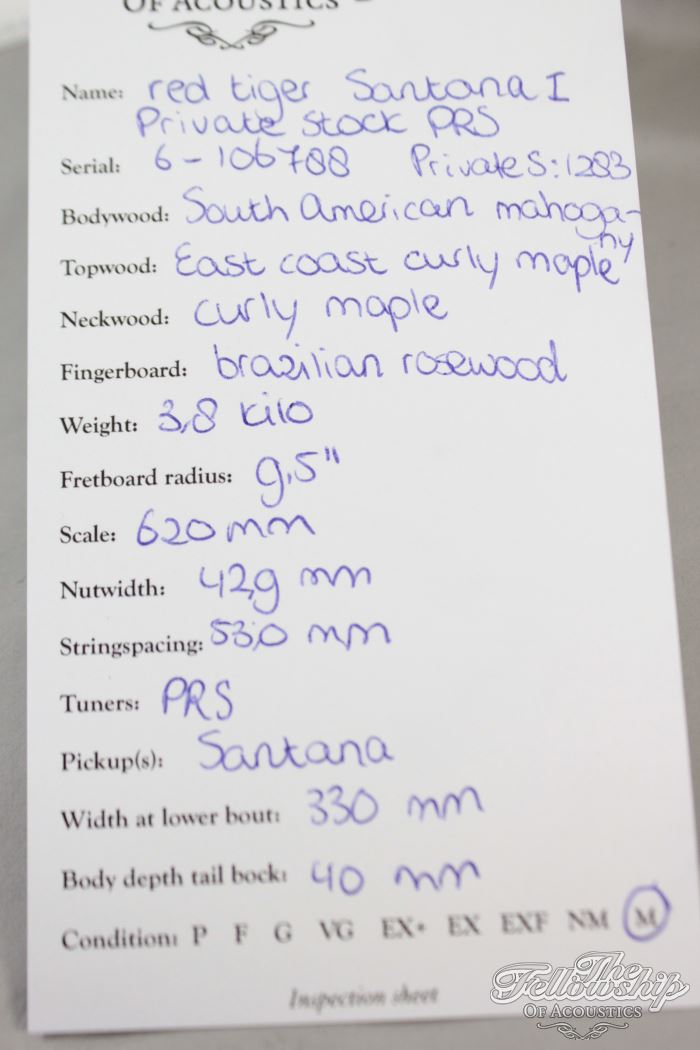 OF ACOUSTICS
Name: red tiger Santana I
Private stock PRS
Serial: 6-106788 Private S: 1283
Bodywood: South American mahoga-
ny
Topwood: East coast curly maple
Neckwood: curly maple
Fingerboard: brazilian rosewood
Weight: 3,8 kilo
Fretboard radius: 9,5"
Scale: 620 mm
Nutwidth: 42,9 mm
Stringspacing: 53,0 mm
Tuners: PRS
Pickup(s): Santana
Width at lower bout: 330 mm
Body depth tail bock: 40 mm
Condition: P F G VG EX+ EX EXF NM M
Inspection sheet
The
Fellowship
OF ACOUSTICS